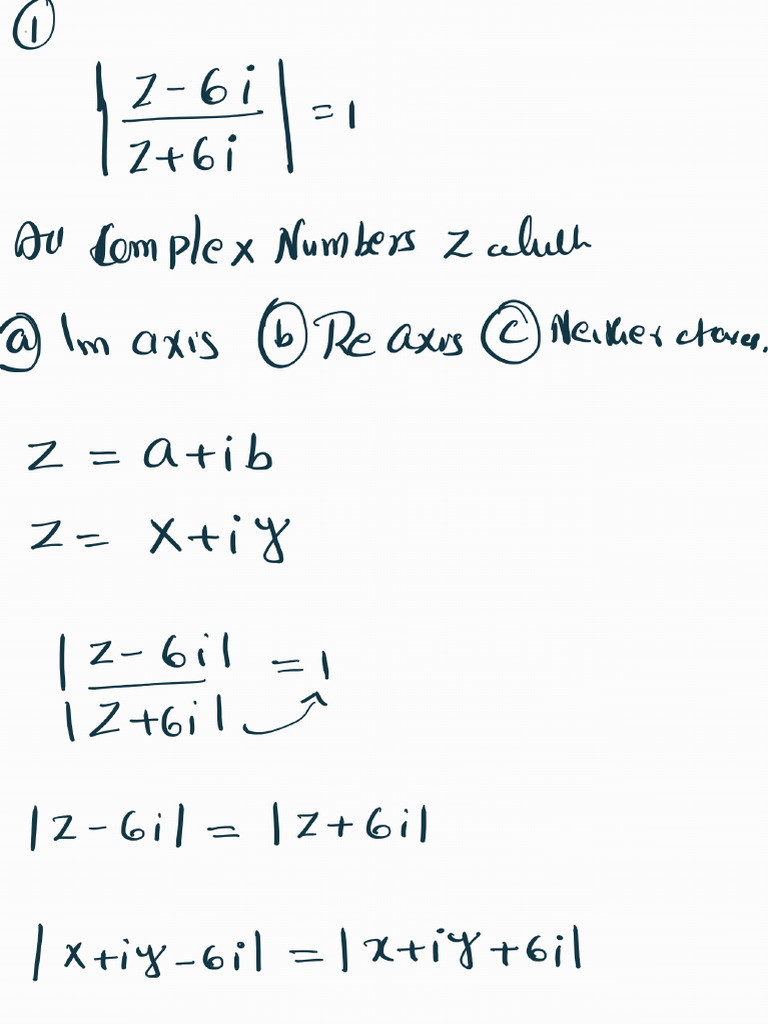 ①
| z - 6i / z + 6i | = 1
All Complex Numbers z which
ⓐ Im axis ⓑ Re axis ⓒ Neither
z = a + ib
z = x + iy
|z - 6i| / |z + 6i| = 1
|z - 6i| = |z + 6i|
|x + iy - 6i| = |x + iy + 6i|